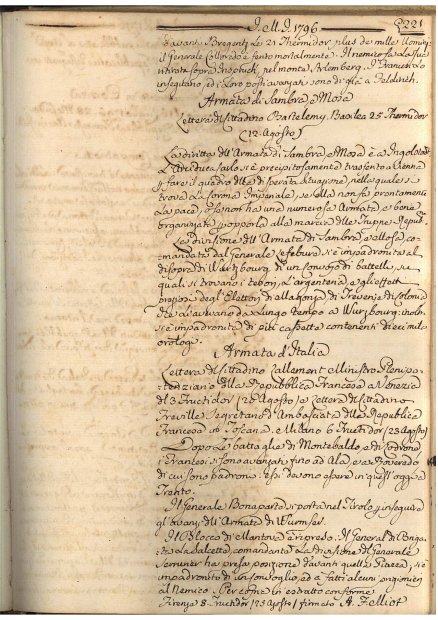 I.M.I. 1796. 221
davanti Bregentz Le 21 Thermidor plus de mille Uomini;
il Generale Collorado è ferito mortalmente. Il nemico fa La sua
ritirata sopra Inspruch, nel monte Arlemberg. I Francesi Lo
inseguano, ed i Loro posti avanzati sono di già a Feldkirch.
Armata di Sambra, e Mosa
Lettera del Cittadino Bartelemy. Basilea 25 Thermidor
(12. Agosto)
La diritta dell'Armata di Sambra, e Mosa è a Ingolstad.
L'Arciduca Carlo si è precipitosamente trasferito a Vienna
p. fare il quadro della disperata situazione, nella quale si
trova La Corona Imperiale, se ella non fa prontamente
La pace, o se non ha una numerosa Armata, e bene
organizzata p. opporla alla marcia delle Truppe Republ.
La divisione dell'Armata di Sambra, e Mosa, co-
mandata dal Generale Lefebure si è impadronita al
disopra di Wurtzbourg di un convojo di battelli, su
quali si trovano i tesori, L'argenteria, e gli effetti
preziosi degl'Elettori di Magonza, di Treveri, e di Colonia
che arrivavano da Lungo tempo a Wurzbourg: inoltre
si è impadronita di più cassette contenenti dieci mila
orologi.
Armata d'Italia
Lettera del Cittadino Lallement Ministro Plenipo-
tenziario della Repubblica Francesa a Venezia
del 3 Fructidor (20 Agosto) e Lettera del Cittadino
Freville Segretario d'Ambasciata della Republica
Francesa in Toscana, e Milano 6 Fructidor (23 Agosto)
Dopo Le battaglie di Montebaldo, e di Lodrone
i Francesi si sono avanzati fino ad Ala, e a Roveredo
di cui sono padroni: essi devono essere in quest'oggi a
Trento.
Il Generale Bonaparte si porta nel Tirolo p. inseguire
gl'avanzi dell'Armata di Wurmser.
Il Blocco di Mantova è ripreso. Il General di Briga-
ta Dalacelto, comandante La divisione del Generale
Seruier ha presa posizione davanti quella Piazza; si è
impadronito di un convoglio, ed a fatti alcuni prigionieri
al Nemico. Per copia di estratto conforme
Firenze 8. Fructidor (25 Agosto) firmato A. F. Miot